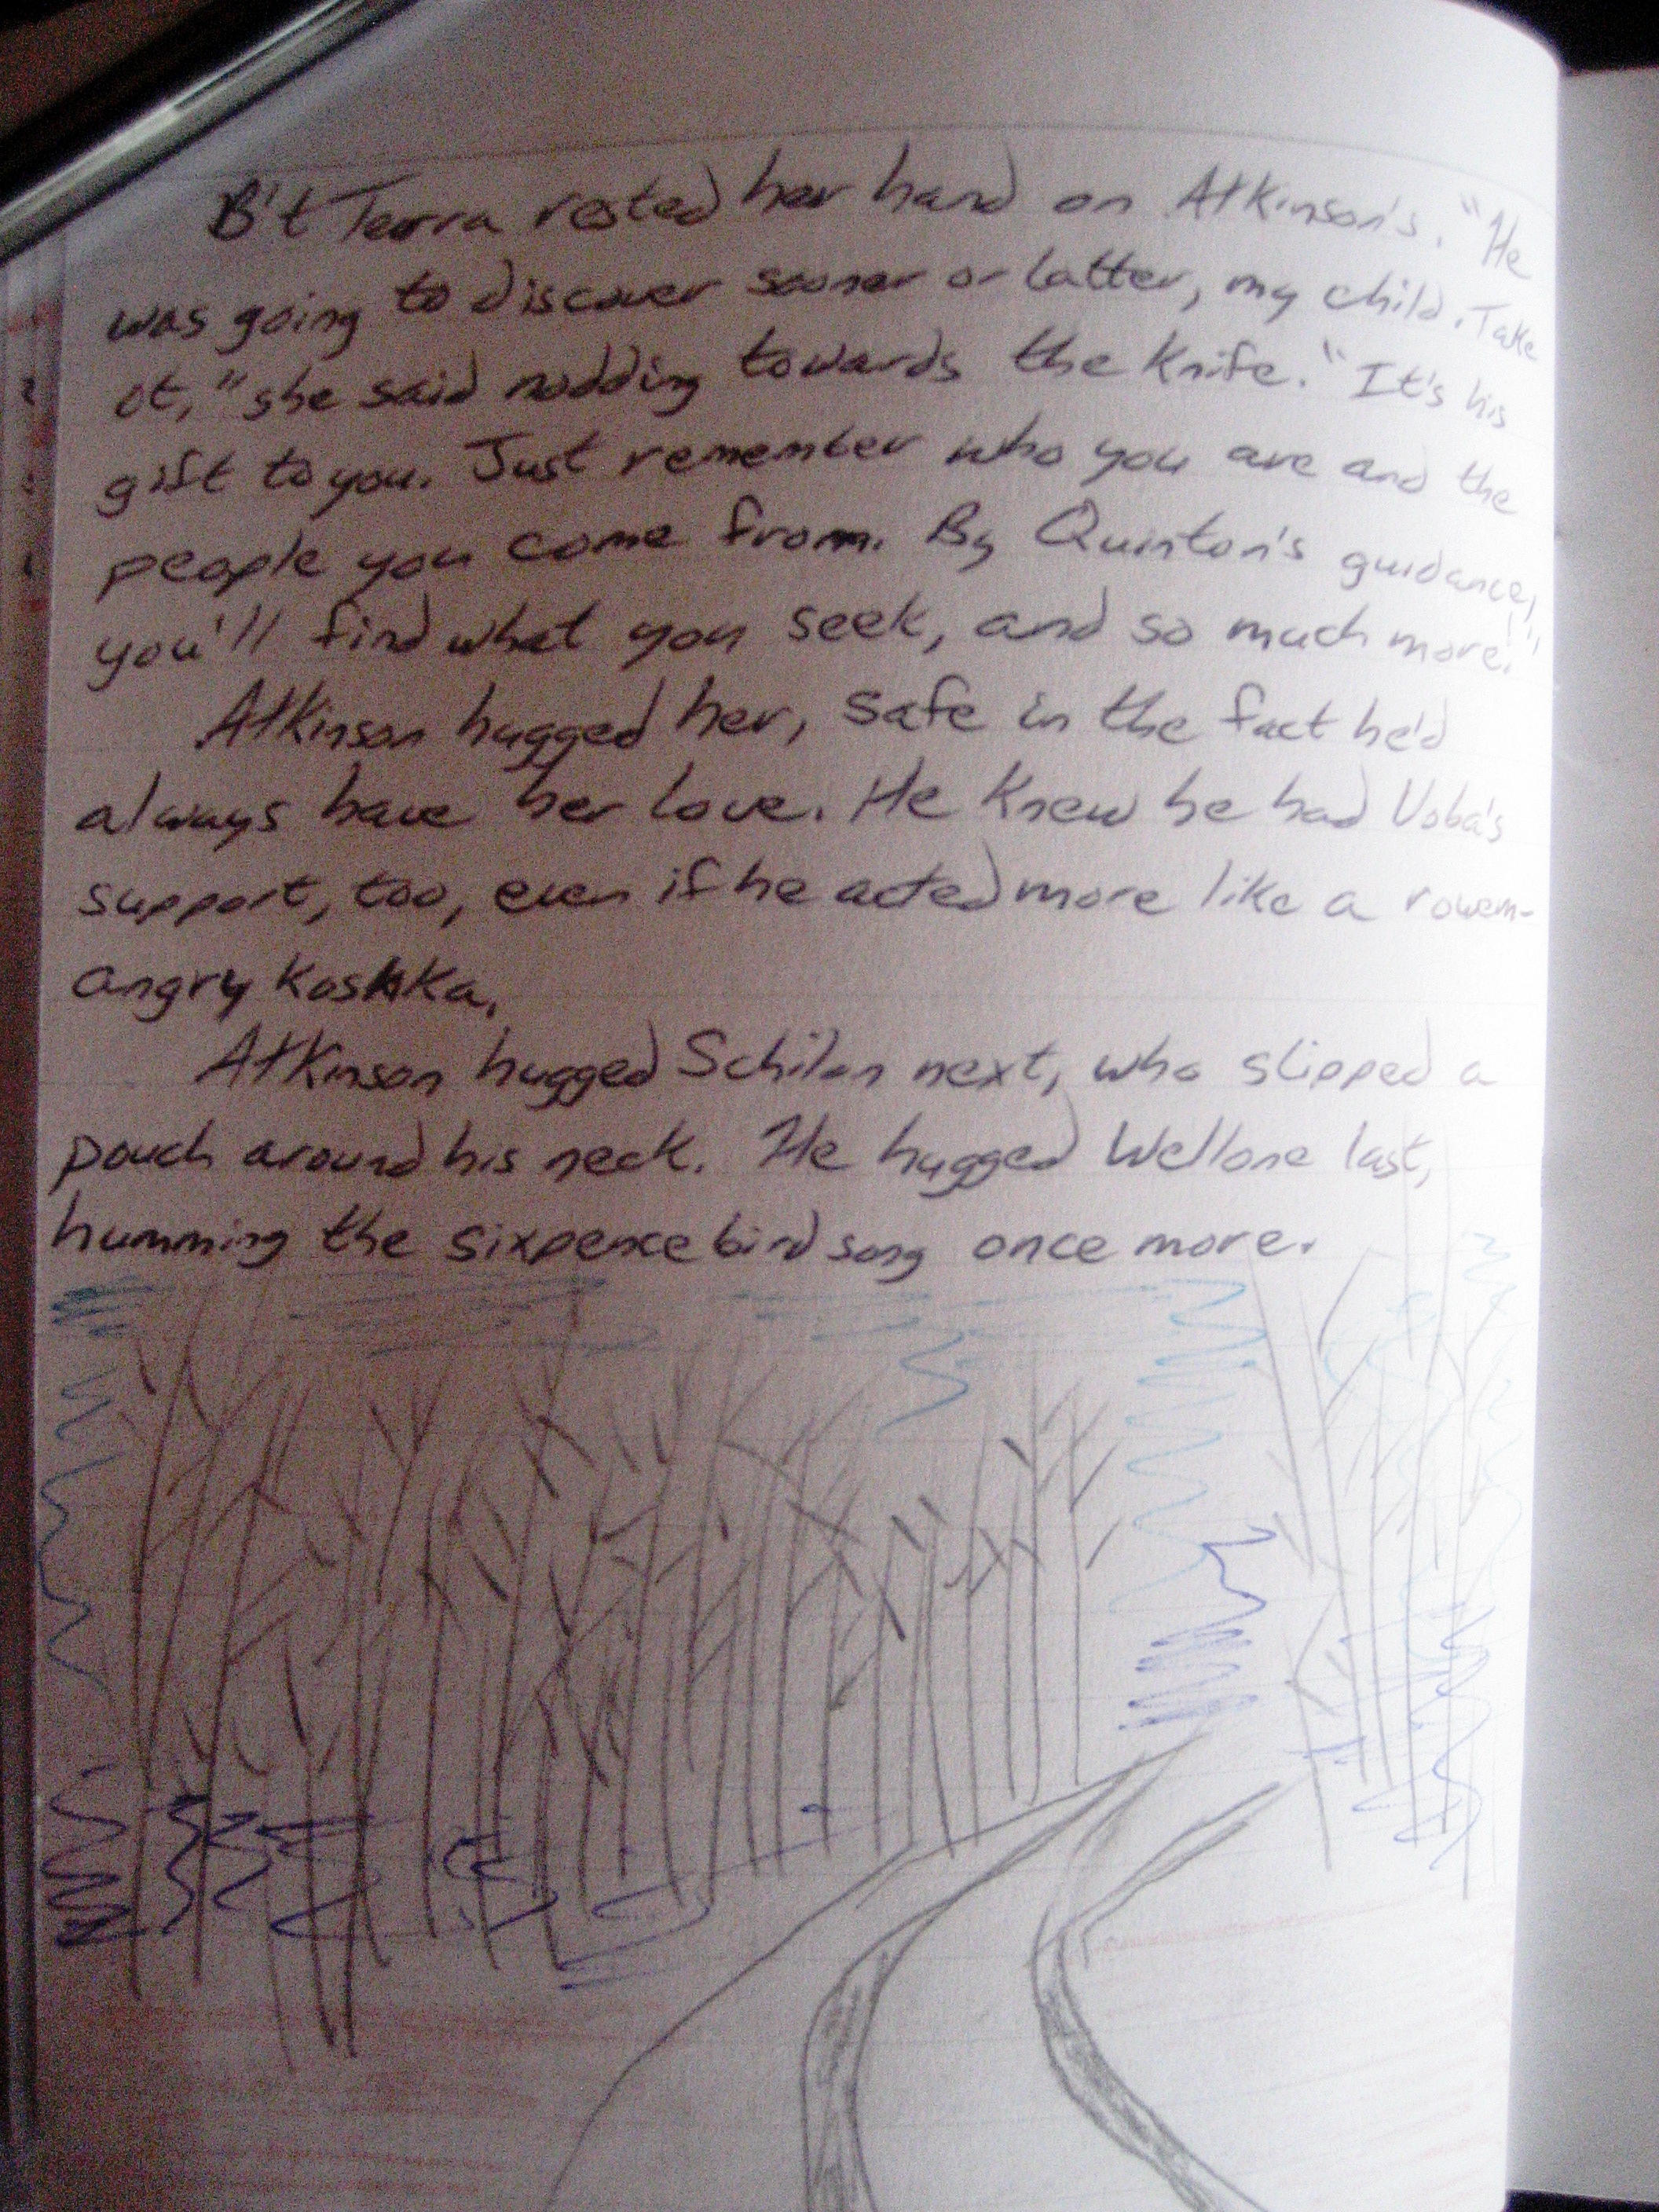 B't Terra rested her hand on Atkinson's. "He
was going to discover sooner or latter, my child. Take
it," she said nodding towards the knife. "It's his
gift to you. Just remember who you are and the
people you come from. By Quinton's guidance,
you'll find what you seek, and so much more!"
Atkinson hugged her, safe in the fact he'd
always have her love. He knew he had Voba's
support, too, even if he acted more like a rowem-
angry Kashka.
Atkinson hugged Schilon next, who slipped a
pouch around his neck. He hugged Wellone last,
humming the sixpence bird song once more.